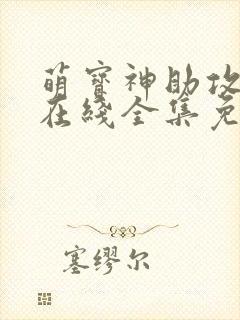 萌寳神助攻
在綫全集免
塞繆尔